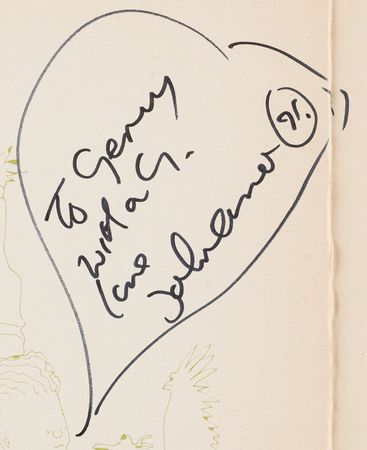 To Gerry
with a G.
love
John Lennon